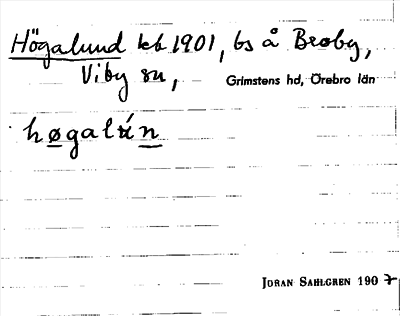 Högalund kb 1901, bs å Broby,
Viby sn,
Grimstens hd, Örebro län
høgalún
JÖRAN SAHLGREN 1907